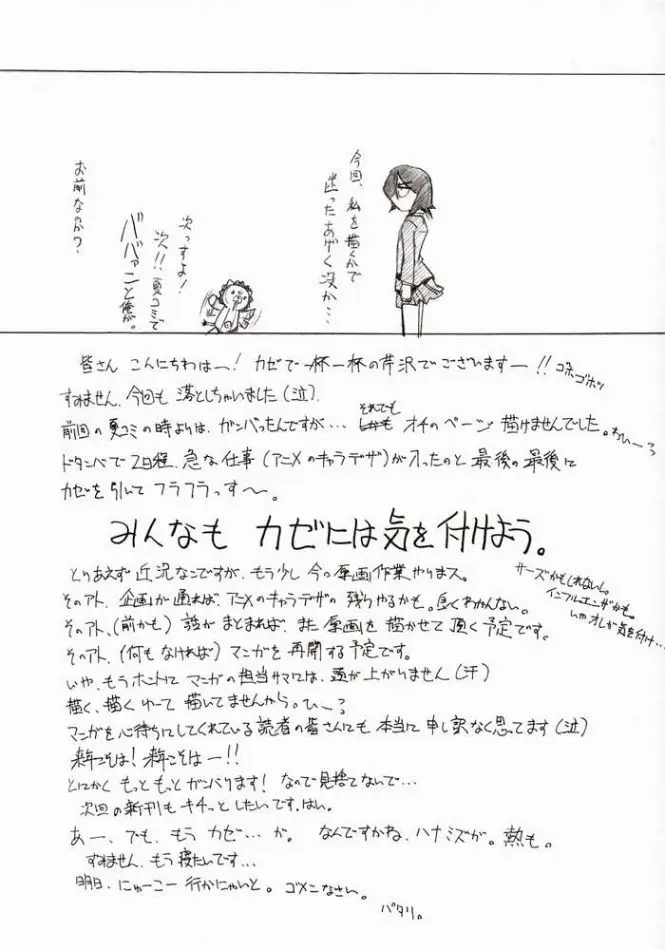 今回、私を描くかで
迷ったあげく没か…
次っすよ!
次!!夏コミで
ババァーンと俺が。
お前なのか?
皆さん こんにちわはー! カゼで一杯一杯の芹沢でございますー!! ゴホゴホッ
すみません、今回も 落としちゃいました(泣)
前回の夏コミの時よりは、ガンバったんですが… それでも オチのページ 描けませんでした。
ドタンバで 2日程、急な仕事(アニメのキャラデザ)が入ったのと 最後の最後に
カゼを引いて フラフラっす〜。
みんなも カゼには気を付けよう。
サーズかもしれないし。
インフルエンザかも。
いやオレが気を付け…
とりあえず 近況なこですが、もう少し 今の原画作業やりまス。
そのアト、企画が通れば、アニメのキャラデザの 残りやるかも。良くわかんない。
そのアト、(前かも) 話が まとまれば、また 原画を 描かせて 頂く予定です。
そのアト、(何もなければ) マンガを 再開する予定です。
いや、もうホントに マンガの担当サマには、頭が上がりません(汗)
描く、描く ゆーて 描いてませんから。ひー?
マンガを心待ちにしてくれている読者の皆さんにも 本当に 申し訳なく思ってます(泣)
来年こそは! 来年こそはー!!
とにかく もっと もっと ガンバります! なので見捨てないで…
次回の新刊も キチッと したいです、はい。
あー、でも、もう カゼ…が。 なんですかね、ハナミズが。熱も。
すみません、もう 寝たいです…
明日、にゅーこー 行かにゃいと。 ゴメンなさい。
パタリ。